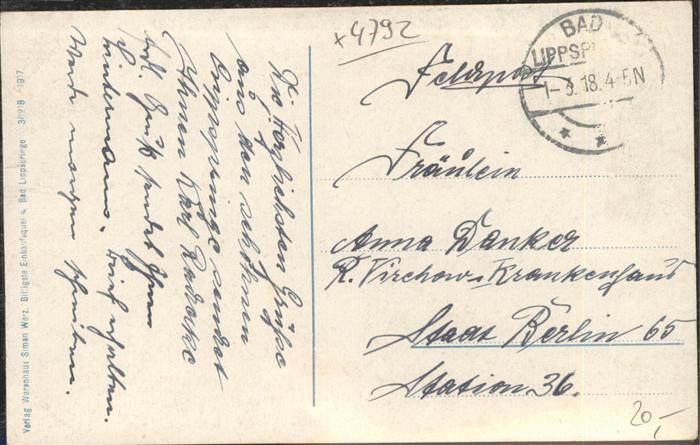 x 4792
BAD
LIPPSP
1-3.18.4-5N
Feldpost
Fräulein
Anna Danker
R. Virchow-Krankenhaus
Staat Berlin 65
Station 36.
20,-
Die herzlichsten Grüße
aus den schönen
Lippspringe sendet
Ihnen Karl
hrl. Grüße sendet Ihnen
Brief erhalten.
Werde morgen schreiben.
Verlag Warenhaus Simon Werz, Billigste Einkaufsquelle, Bad Lippspringe 30218 1917